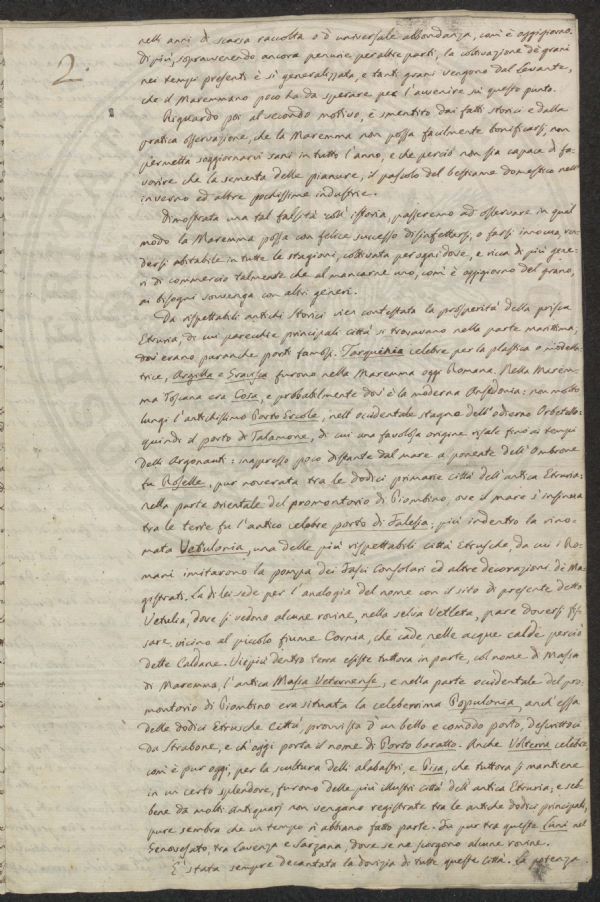 2.
nelli anni di scarsa raccolta o d'universale abbondanza, com'è oggigiorno.
Di più, sopravenendo ancora penurie per altre parti, la coltivazione de' grani
nei tempi presenti è sì generalizzata, e tanti grani vengono dal Levante,
che il Maremmano poco ha da sperare per l'avvenire su questo punto.
Riguardo poi al secondo motivo, è smentito dai fatti storici e dalla
pratica osservazione, che la Maremma non possa facilmente bonificarsi, non
permetta soggiornarvi sani in tutto l'anno, e che perciò non sia capace di fa-
vorire che la sementa delle pianure, il pascolo del bestiame domestico nell'
inverno ed altre pochissime industrie.
Dimostrata una tal falsità coll'istoria, passeremo ad osservare in qual
modo la Maremma possa con felice successo disinfettarsi, o farsi innocua, ren-
dersi abitabile in tutte le stagioni, coltivata per ogni dove, e ricca di più gene-
ri di commercio talmente che al mancarne uno, com'è oggigiorno del grano,
ai bisogni sovvenga con altri generi.
Da rispettabili antichi Storici vien contestata la prosperità della prisca
Etruria, di cui parecchie principali città si trovavano nella parte marittima,
dov'erano puranche porti famosi. Tarquenia celebre per la plastica o modella-
trice, Argilla e Gravisca furono nella Maremma oggi Romana. Nella Marem-
ma Toscana era Cosa, e probabilmente dov'è la moderna Ansedonia: non molto
lungi l'antichissimo Porto Ercole, nell'occidentale stagno dell'odierno Orbetello:
quindi il porto di Talamone, di cui una favolosa origine risale fino ai tempi
delli Argonauti: inappresso poco distante dal mare a ponente dell'Ombrone
fu Roselle, pur noverata tra le dodici primarie città dell'antica Etruria:
nella parte orientale del promontorio di Piombino, ove il mare s'insinua
tra le terre fu l'antico celebre porto di Falesia: più indentro la rino-
mata Vetulonia, una delle più rispettabili città Etrusche, da cui i Ro-
mani imitarono la pompa dei Fasci Consolari ed altre decorazioni di Ma-
gistrati. La di lei sede per l'analogia del nome con il sito di presente detto
Vetulia, dove si vedono alcune rovine, nella selva Vetleta, pare doversi fis-
sare, vicino al piccolo fiume Cornia, che cade nelle acque calde perciò
dette Caldane. Viepiù dentro terra esiste tuttora in parte, col nome di Massa
di Maremma, l'antica Massa Veternense, e nella parte occidentale del pro-
montorio di Piombino era situata la celeberrima Populonia, anch'essa
delle dodici Etrusche Città, provvista d'un bello e comodo porto, descrittoci
da Strabone, e ch'oggi porta il nome di Porto baratto. Anche Volterra celebre,
com'è pur oggi, per la scultura delli alabastri, e Pisa, che tuttora si mantiene
in un certo splendore, furono delle più illustri città dell'antica Etruria; e seb-
bene da molti Antiquarj non vengano registrate tra le antiche dodici principali,
pure sembra che un tempo vi abbiano fatto parte. Fu pur tra queste Luni nel
Genovesato, tra Lavenza e Sarzana, dove se ne scorgono alcune rovine.
È stata sempre decantata la dovizia di tutte queste città. La potenza